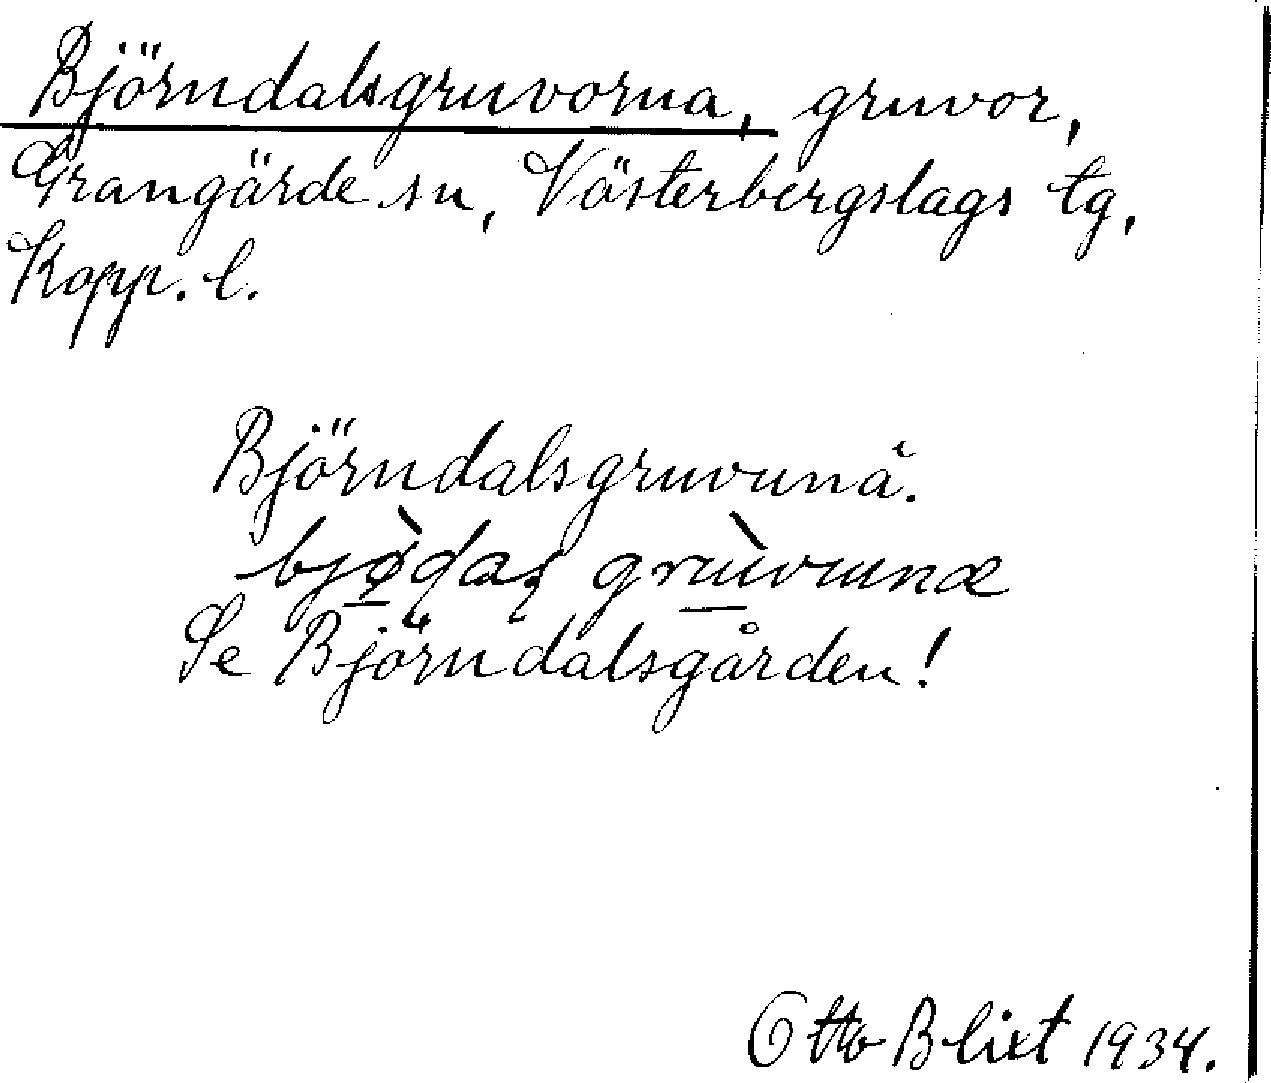 Björndalsgruvorna, gruvor,
Grangärde sn, Västerbergslags tg,
Kopp. l.
Björndalsgruvunä.
Se Björndalsgården!
Otto Blixt 1934.